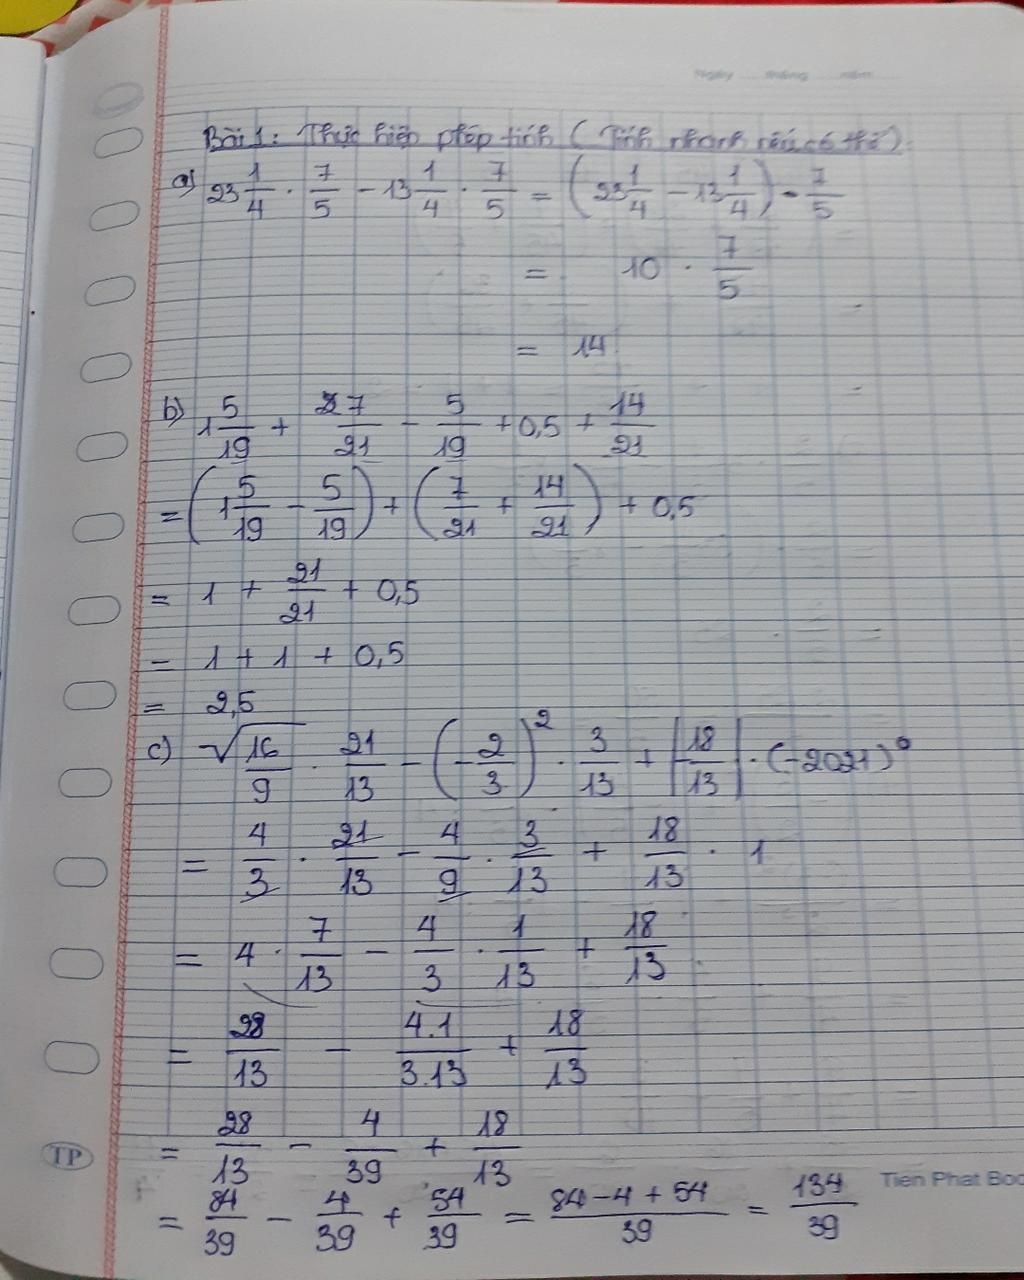 Ngày tháng năm
Bài 1: Thực hiện phép tính (Tính nhanh nếu có thể).
a) 23 1/4 · 7/5 - 13 1/4 · 7/5 = (23 1/4 - 13 1/4) · 7/5
= 10 · 7/5
= 14
b) 1 5/19 + 7/21 - 5/19 + 0,5 + 14/21
= (1 5/19 - 5/19) + (7/21 + 14/21) + 0,5
= 1 + 21/21 + 0,5
= 1 + 1 + 0,5
= 2,5
c) √16/9 · 21/13 - (-2/3)² · 3/13 + |-18/13| · (-2021)⁰
= 4/3 · 21/13 - 4/9 · 3/13 + 18/13 · 1
= 4 · 7/13 - 4/3 · 1/13 + 18/13
= 28/13 - 4.1/3.13 + 18/13
= 28/13 - 4/39 + 18/13
TP
Tien Phat Boo
= 84/39 - 4/39 + 54/39 = 84-4+54/39 = 134/39